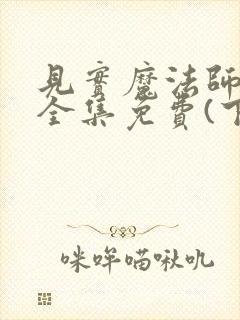 見實魔法師
全集免費(下
咪咩喵啾吼